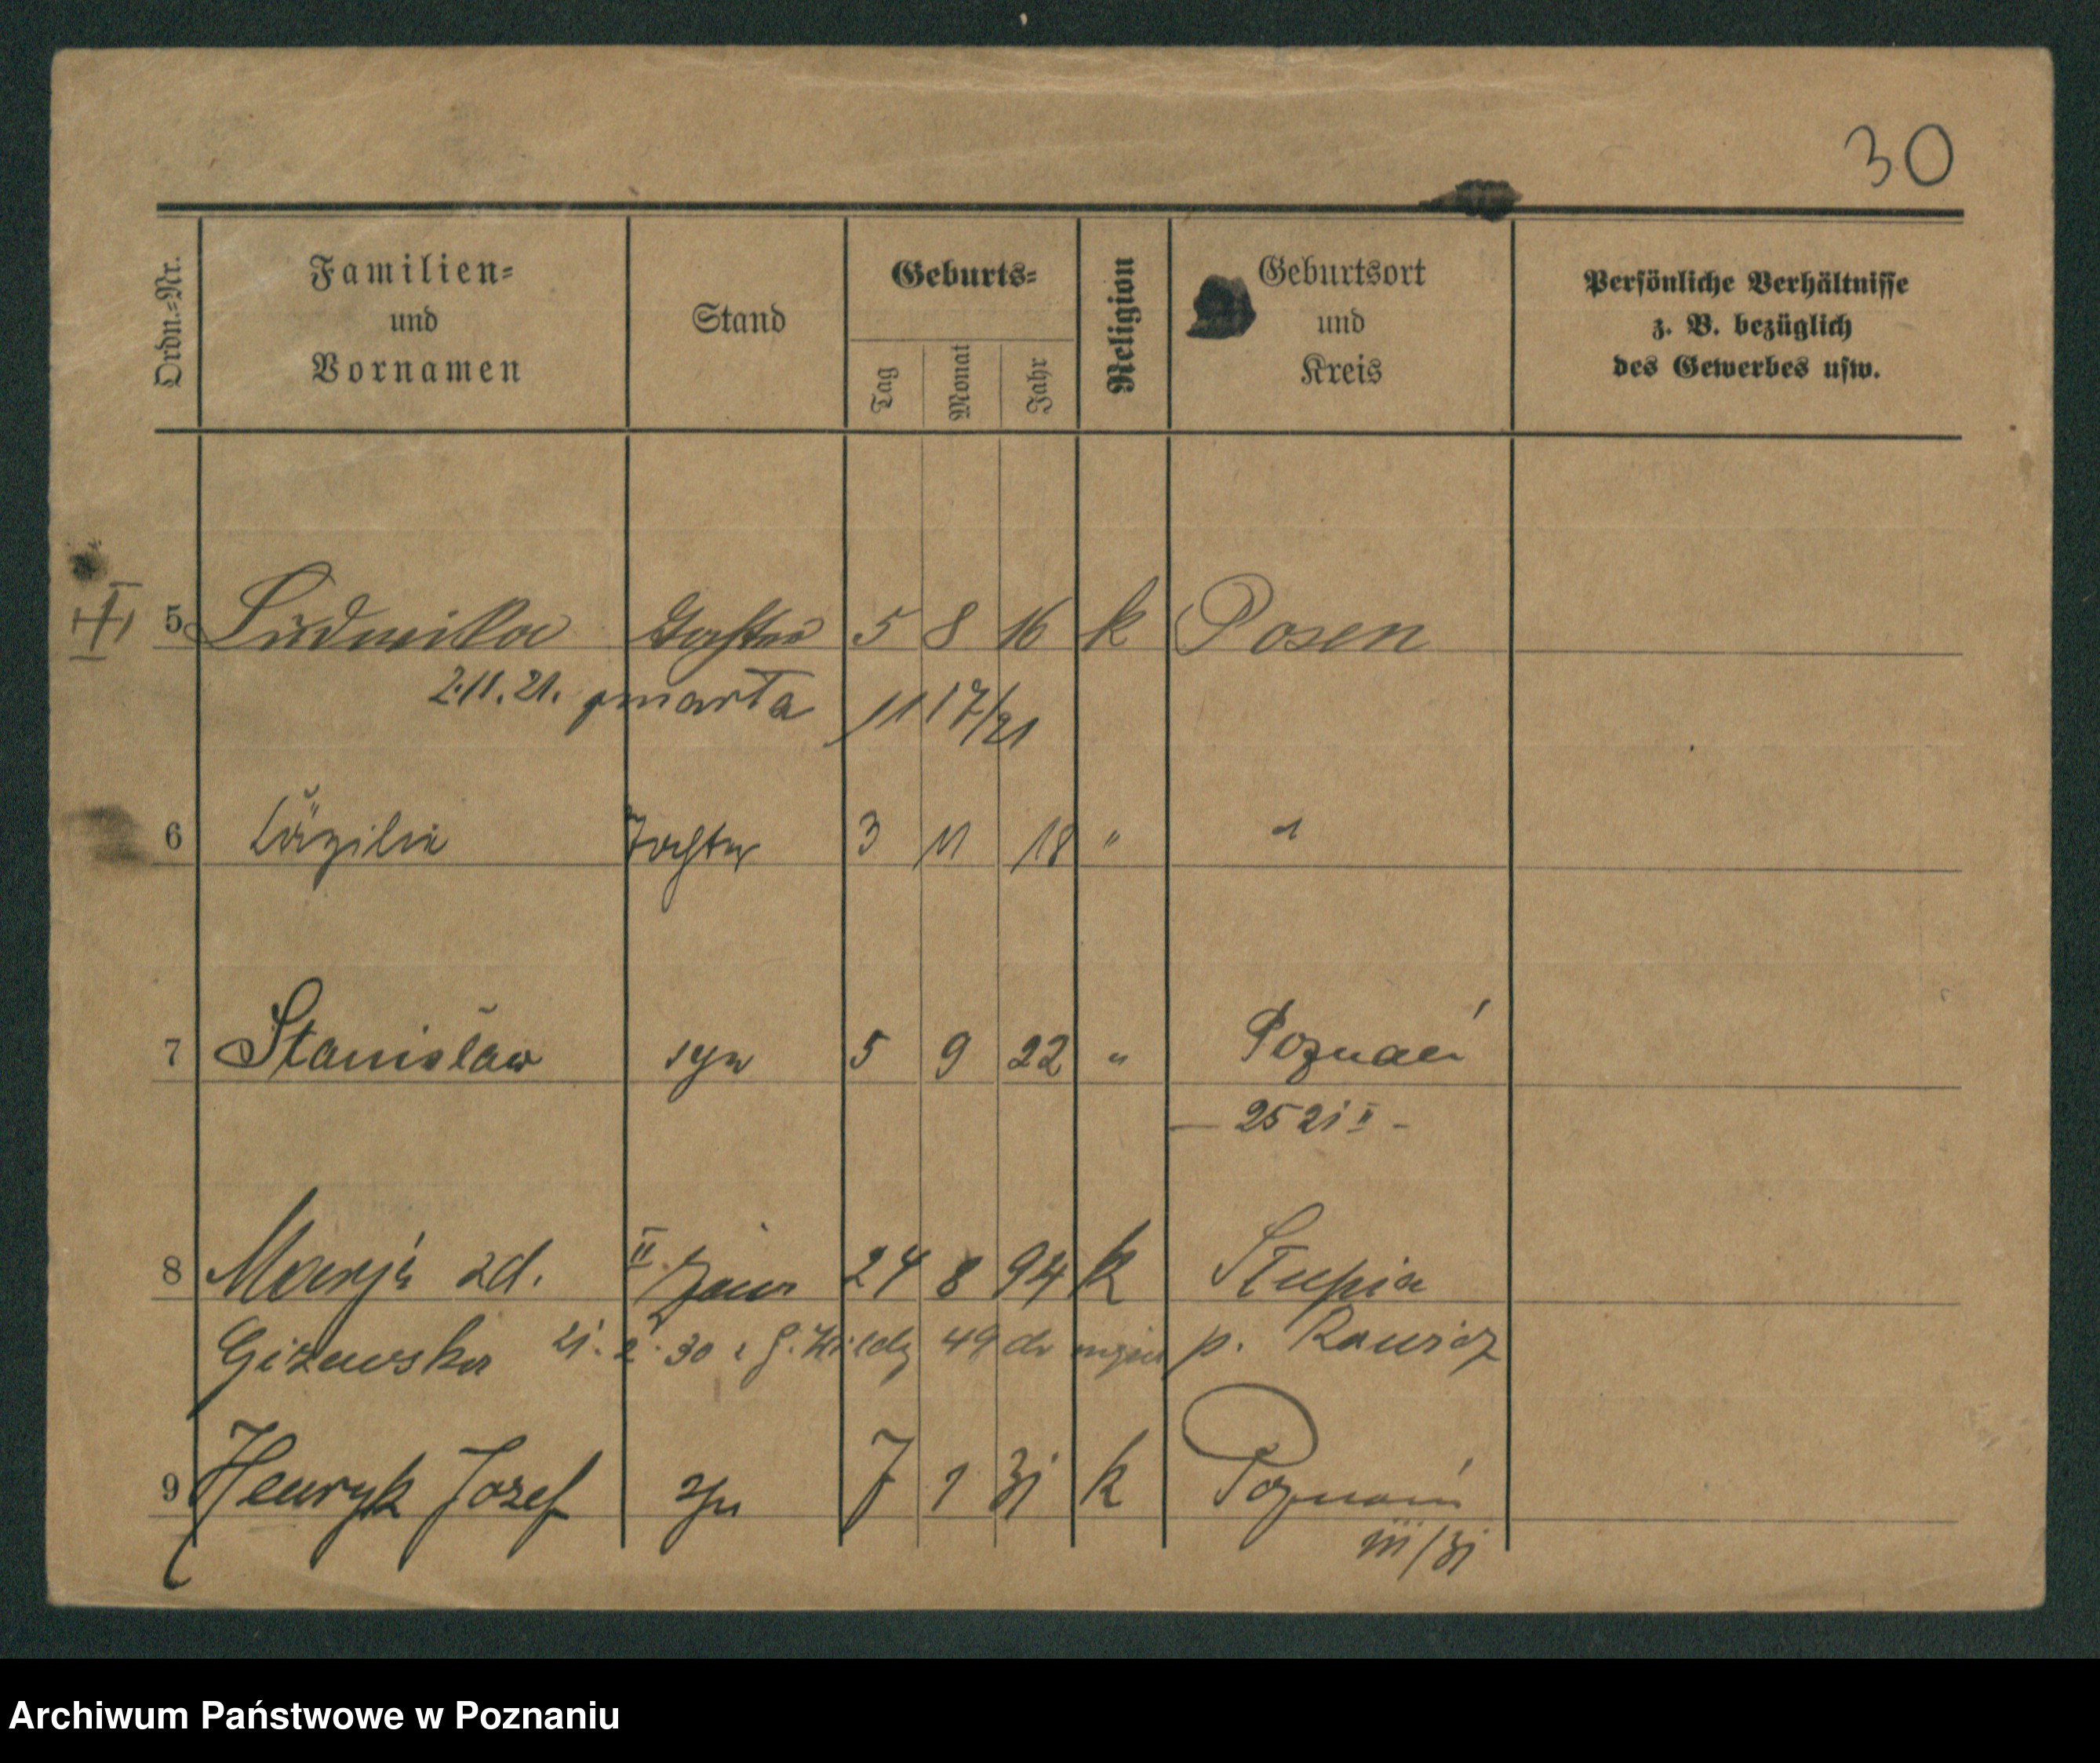 30
Ordn.-Nr.
Familien-
und
Vornamen
Stand
Geburts-
Tag
Monat
Jahr
Religion
Geburtsort
und
Kreis
Persönliche Verhältnisse
z. B. bezüglich
des Gewerbes usw.
5 Ludwika Tochter 5 8 16 k Posen
2.11.21. zmarła 11 17/21
6 Cäzilie Tochter 3 11 18 " "
7 Stanisław syn 5 9 22 " Poznań
- 25 21 II -
8 Marja zd. II żona 24 8 94 k Słupia
Giżewska 21. 2. 30 49 p. Rawicz
9 Henryk Józef syn 7 1 31 k Poznań
III/31
Archiwum Państwowe w Poznaniu